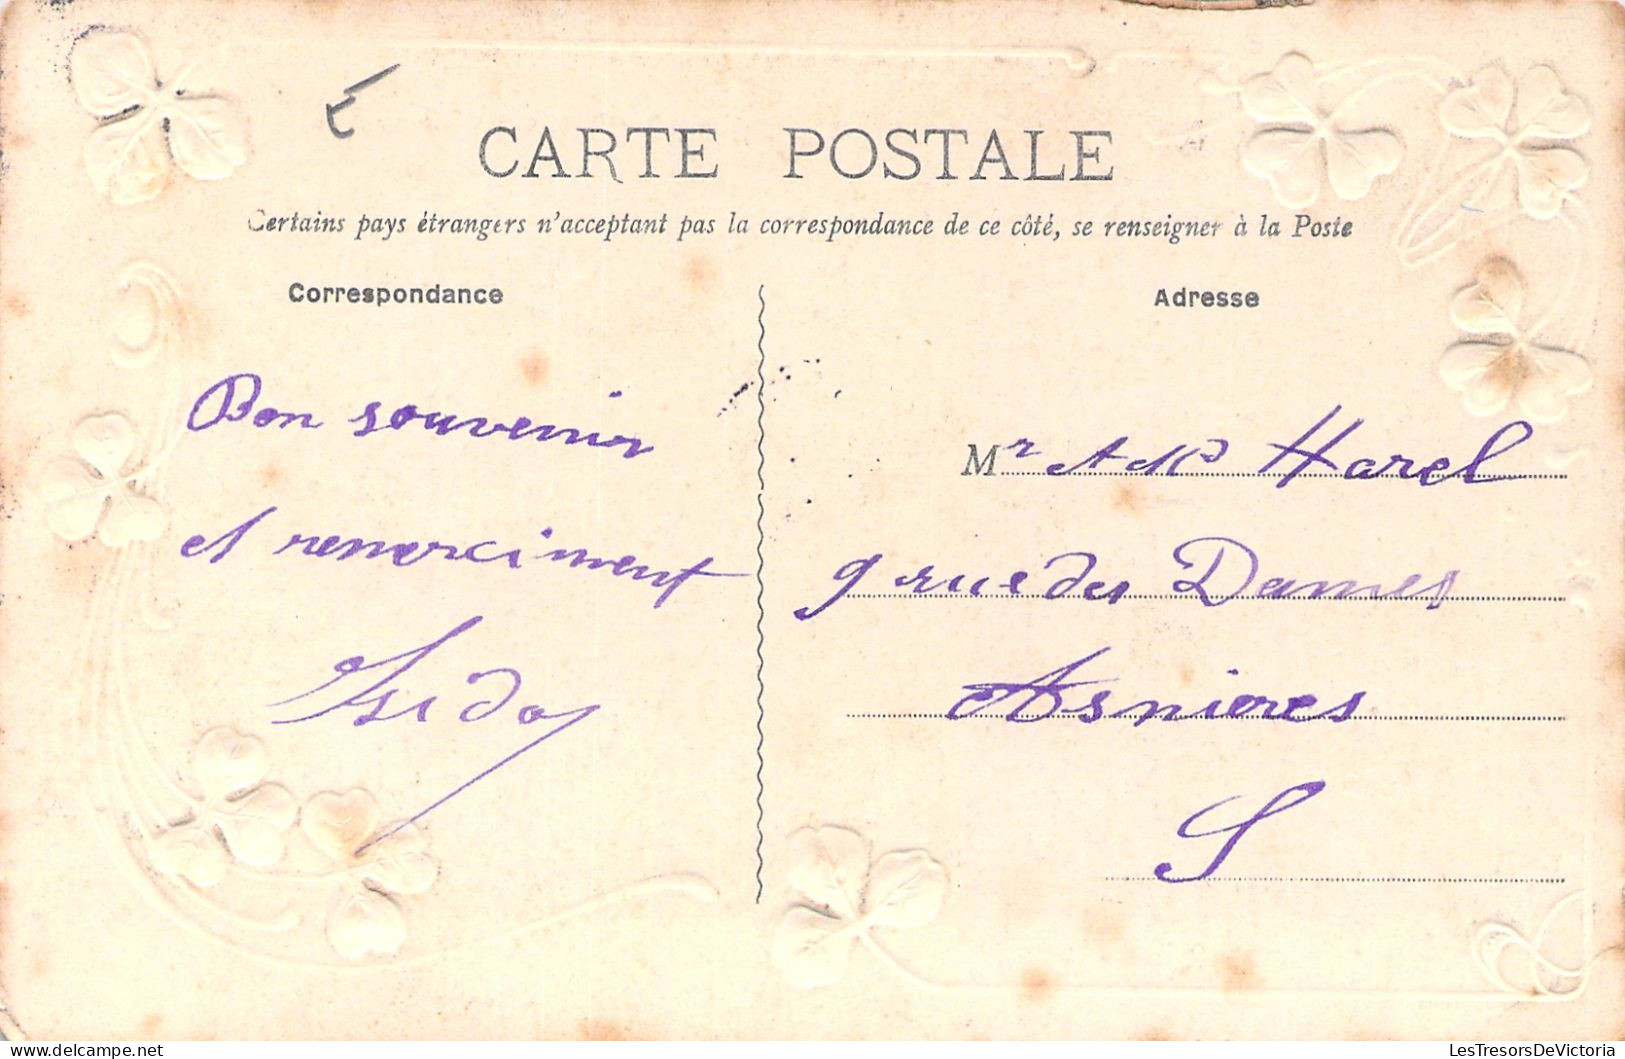 CARTE POSTALE
Certains pays étrangers n'acceptant pas la correspondance de ce côté, se renseigner à la Poste
Correspondance
Bon souvenir
et remerciment
Adresse
Mr Harel
9 rue des Dames
Asnieres
S
LesTresorsDeVictoria